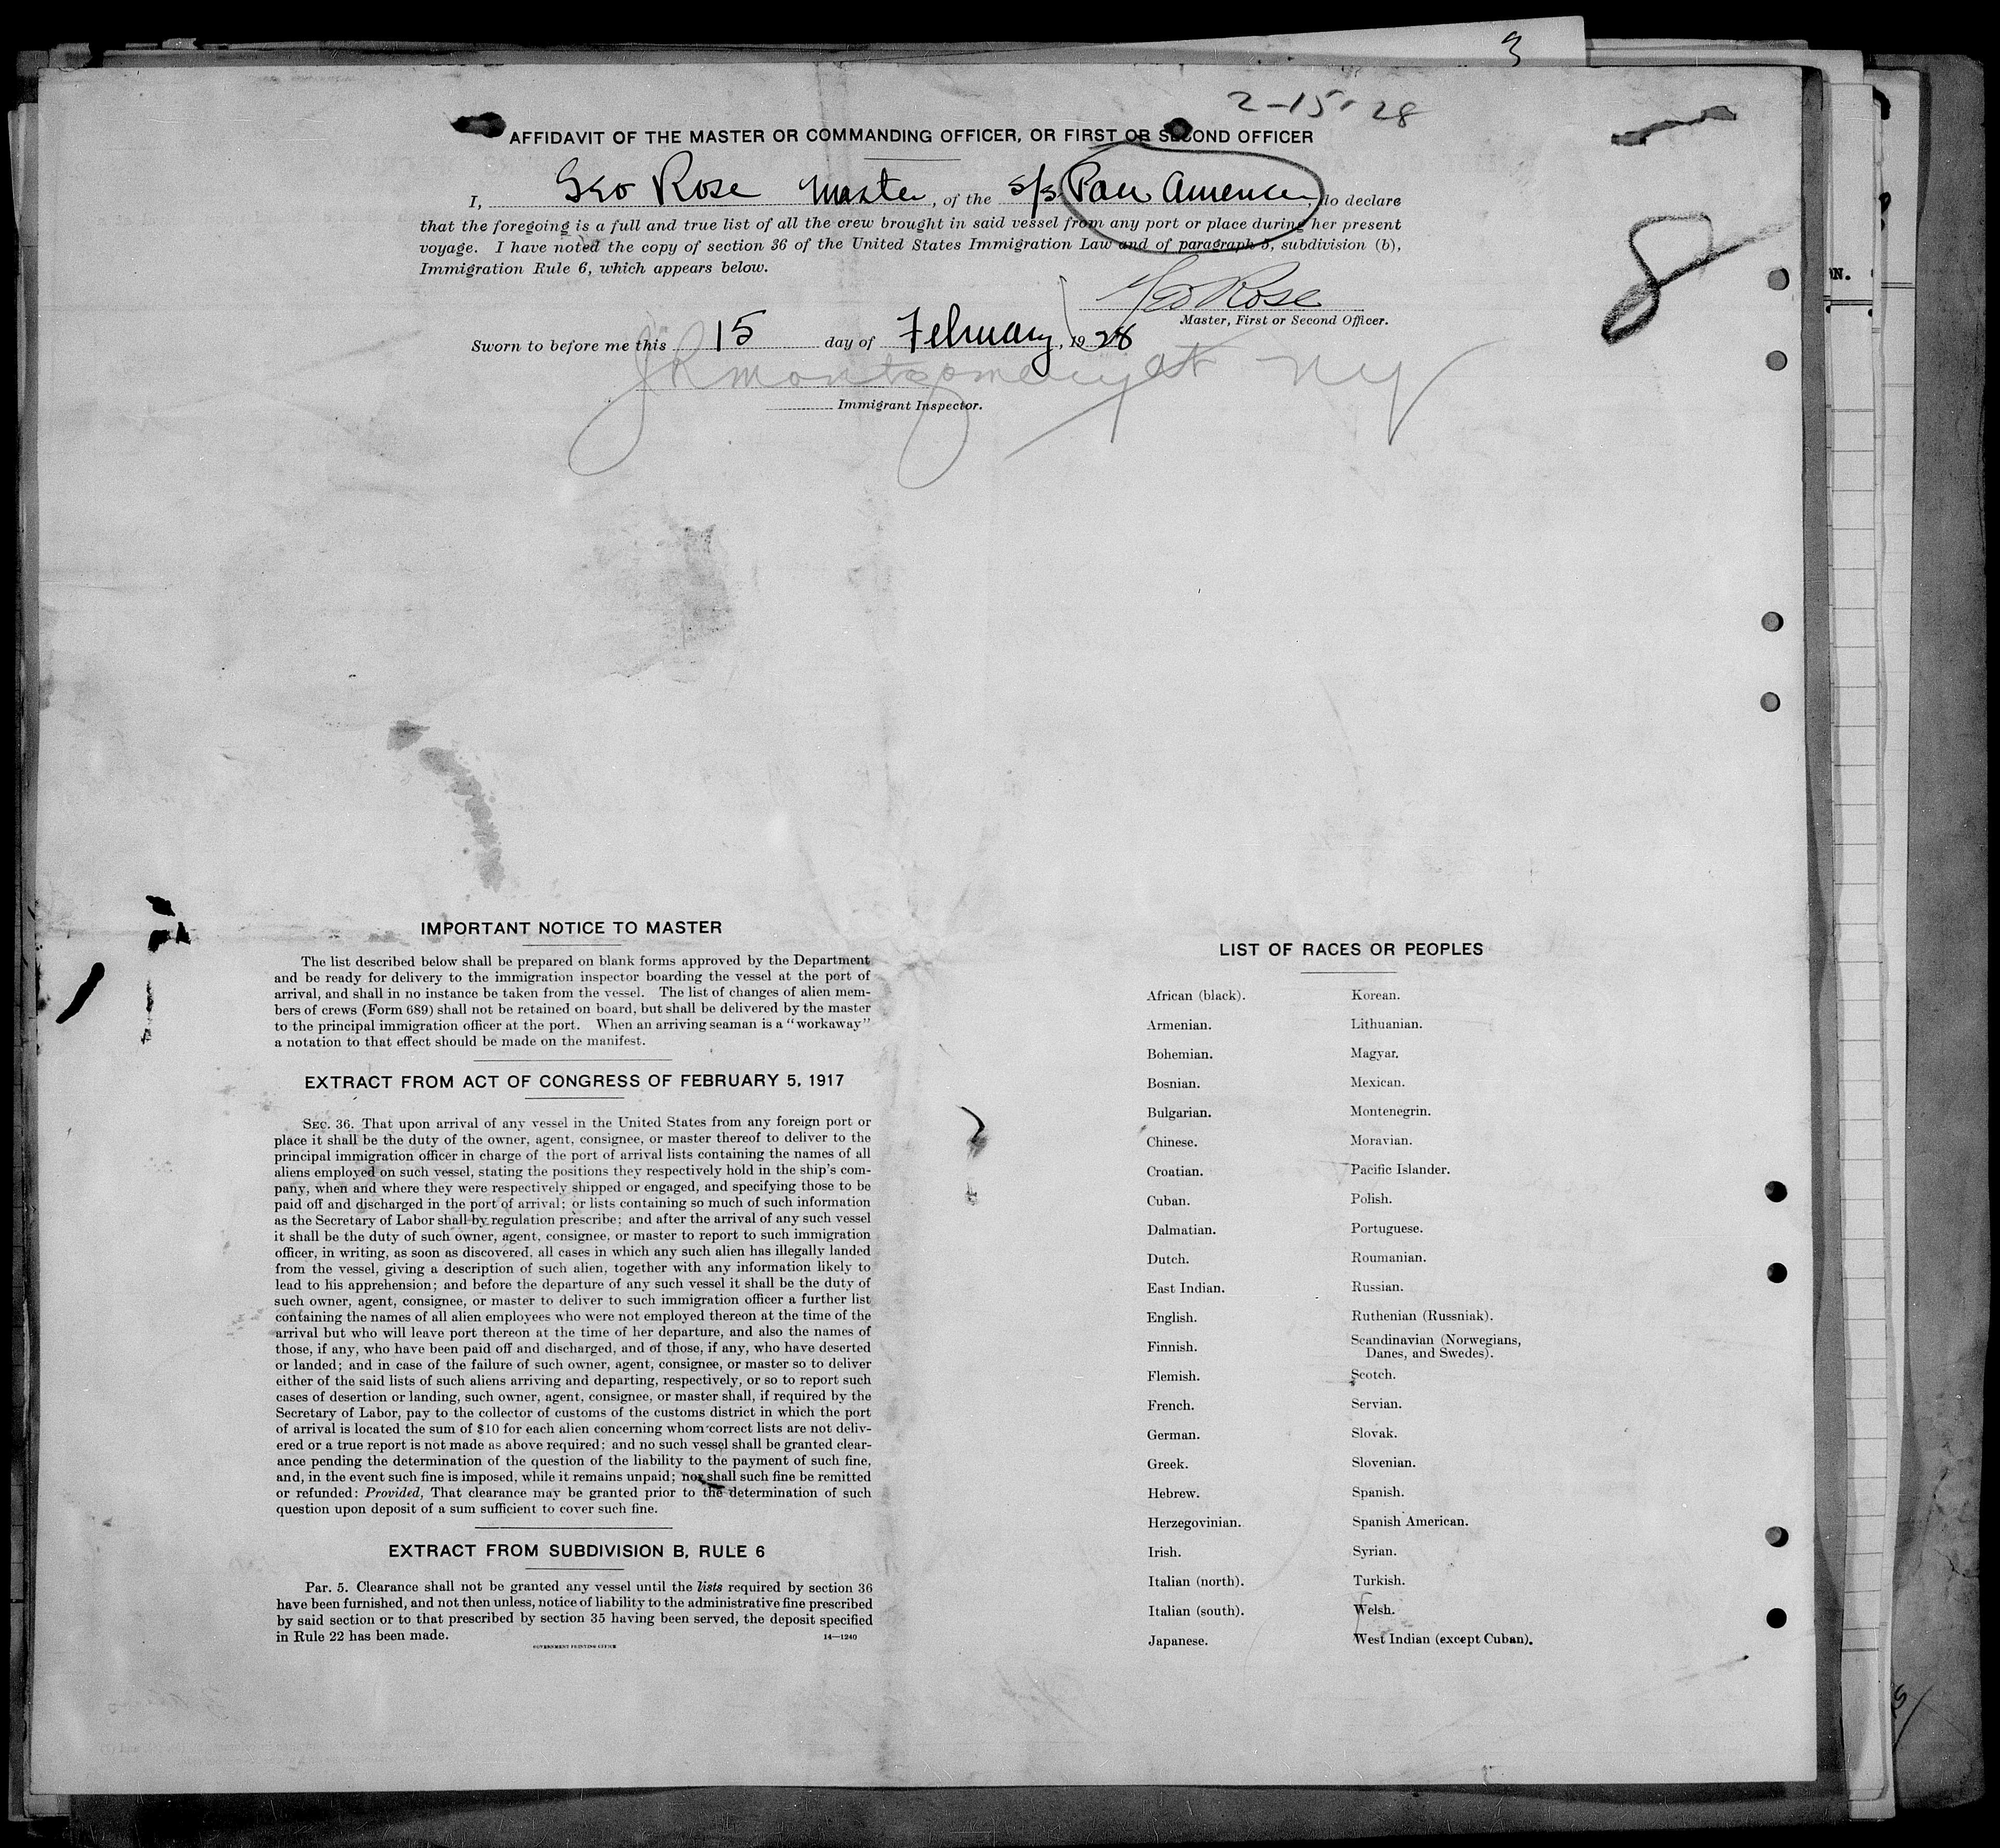 3
2-15-28
AFFIDAVIT OF THE MASTER OR COMMANDING OFFICER, OR FIRST OR SECOND OFFICER
I, Geo Rose Master, of the S/S Pan America, do declare
that the foregoing is a full and true list of all the crew brought in said vessel from any port or place during her present
voyage. I have noted the copy of section 36 of the United States Immigration Law and of paragraph 5, subdivision (b),
Immigration Rule 6, which appears below.
Geo Rose
Master, First or Second Officer.
Sworn to before me this 15 day of February, 1928
JR Montgomery at NY
Immigrant Inspector.
8
N.
IMPORTANT NOTICE TO MASTER
The list described below shall be prepared on blank forms approved by the Department
and be ready for delivery to the immigration inspector boarding the vessel at the port of
arrival, and shall in no instance be taken from the vessel. The list of changes of alien mem-
bers of crews (Form 689) shall not be retained on board, but shall be delivered by the master
to the principal immigration officer at the port. When an arriving seaman is a "workaway"
a notation to that effect should be made on the manifest.
EXTRACT FROM ACT OF CONGRESS OF FEBRUARY 5, 1917
SEC. 36. That upon arrival of any vessel in the United States from any foreign port or
place it shall be the duty of the owner, agent, consignee, or master thereof to deliver to the
principal immigration officer in charge of the port of arrival lists containing the names of all
aliens employed on such vessel, stating the positions they respectively hold in the ship's com-
pany, when and where they were respectively shipped or engaged, and specifying those to be
paid off and discharged in the port of arrival; or lists containing so much of such information
as the Secretary of Labor shall by regulation prescribe; and after the arrival of any such vessel
it shall be the duty of such owner, agent, consignee, or master to report to such immigration
officer, in writing, as soon as discovered, all cases in which any such alien has illegally landed
from the vessel, giving a description of such alien, together with any information likely to
lead to his apprehension; and before the departure of any such vessel it shall be the duty of
such owner, agent, consignee, or master to deliver to such immigration officer a further list
containing the names of all alien employees who were not employed thereon at the time of the
arrival but who will leave port thereon at the time of her departure, and also the names of
those, if any, who have been paid off and discharged, and of those, if any, who have deserted
or landed; and in case of the failure of such owner, agent, consignee, or master so to deliver
either of the said lists of such aliens arriving and departing, respectively, or so to report such
cases of desertion or landing, such owner, agent, consignee, or master shall, if required by the
Secretary of Labor, pay to the collector of customs of the customs district in which the port
of arrival is located the sum of $10 for each alien concerning whom correct lists are not deliv-
ered or a true report is not made as above required; and no such vessel shall be granted clear-
ance pending the determination of the question of the liability to the payment of such fine,
and, in the event such fine is imposed, while it remains unpaid; nor shall such fine be remitted
or refunded: Provided, That clearance may be granted prior to the determination of such
question upon deposit of a sum sufficient to cover such fine.
EXTRACT FROM SUBDIVISION B, RULE 6
Par. 5. Clearance shall not be granted any vessel until the lists required by section 36
have been furnished, and not then unless, notice of liability to the administrative fine prescribed
by said section or to that prescribed by section 35 having been served, the deposit specified
in Rule 22 has been made.
14—1240
GOVERNMENT PRINTING OFFICE
LIST OF RACES OR PEOPLES
African (black). Korean.
Armenian. Lithuanian.
Bohemian. Magyar.
Bosnian. Mexican.
Bulgarian. Montenegrin.
Chinese. Moravian.
Croatian. Pacific Islander.
Cuban. Polish.
Dalmatian. Portuguese.
Dutch. Roumanian.
East Indian. Russian.
English. Ruthenian (Russniak).
Finnish. Scandinavian (Norwegians,
Danes, and Swedes).
Flemish. Scotch.
French. Servian.
German. Slovak.
Greek. Slovenian.
Hebrew. Spanish.
Herzegovinian. Spanish American.
Irish. Syrian.
Italian (north). Turkish.
Italian (south). Welsh.
Japanese. West Indian (except Cuban).